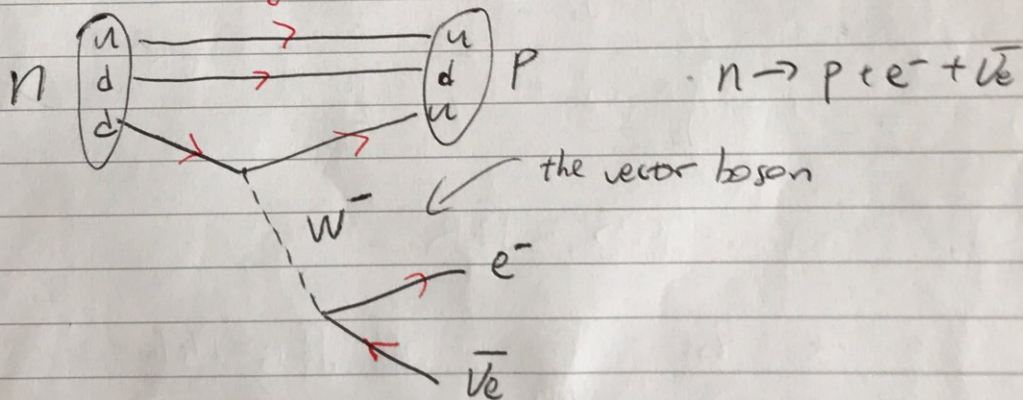 n u d d u d u p
n → p + e⁻ + ν̄e
the vector boson
W⁻
e⁻
ν̄e